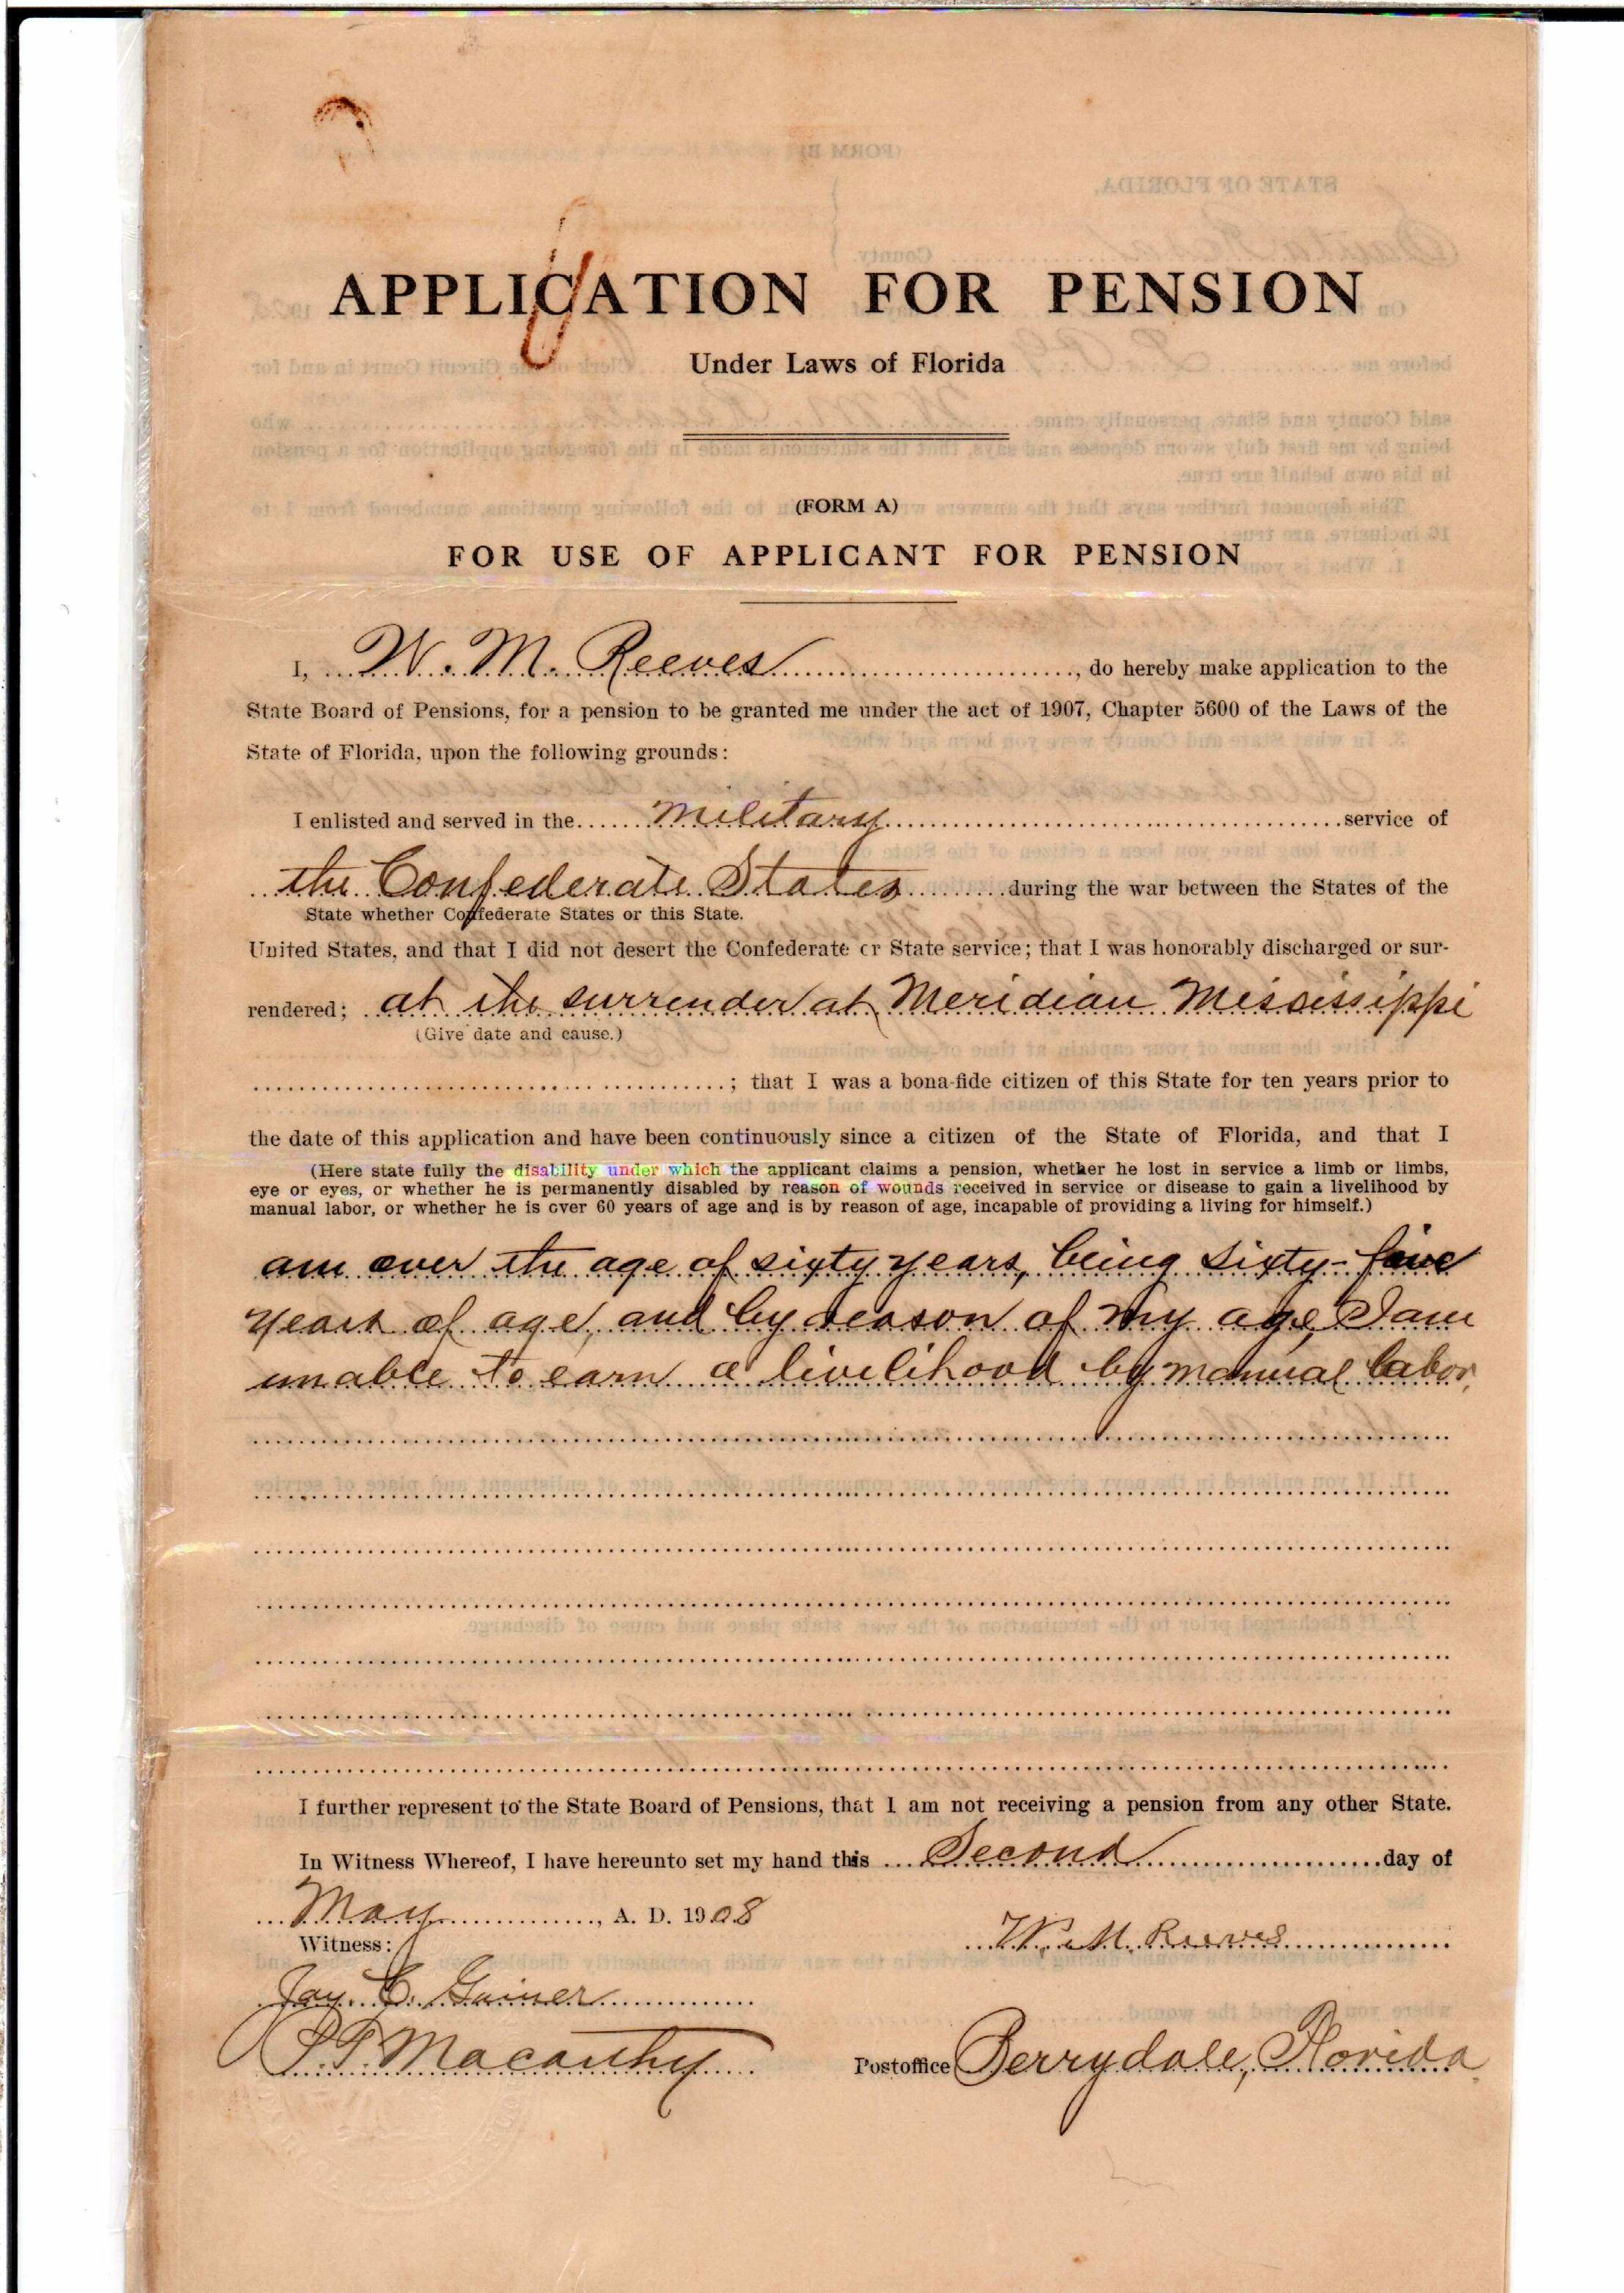 APPLICATION FOR PENSION
Under Laws of Florida
(FORM A)
FOR USE OF APPLICANT FOR PENSION
I, W. M. Reeves, do hereby make application to the
State Board of Pensions, for a pension to be granted me under the act of 1907, Chapter 5600 of the Laws of the
State of Florida, upon the following grounds:
I enlisted and served in the military service of
the Confederate States during the war between the States of the
State whether Confederate States or this State.
United States, and that I did not desert the Confederate or State service; that I was honorably discharged or sur-
rendered; at the surrender at Meridian Mississippi
(Give date and cause.)
; that I was a bona-fide citizen of this State for ten years prior to
the date of this application and have been continuously since a citizen of the State of Florida, and that I
(Here state fully the disability under which the applicant claims a pension, whether he lost in service a limb or limbs,
eye or eyes, or whether he is permanently disabled by reason of wounds received in service or disease to gain a livelihood by
manual labor, or whether he is over 60 years of age and is by reason of age, incapable of providing a living for himself.)
am over the age of sixty years, being sixty-five
years of age, and by reason of my age I am
unable to earn a livelihood by manual labor.
I further represent to the State Board of Pensions, that I am not receiving a pension from any other State.
In Witness Whereof, I have hereunto set my hand this Second day of
May, A. D. 1908
W. M. Reeves
Witness:
Jay C. Gainer
P. T. Macarthy
Postoffice Berrydale, Florida